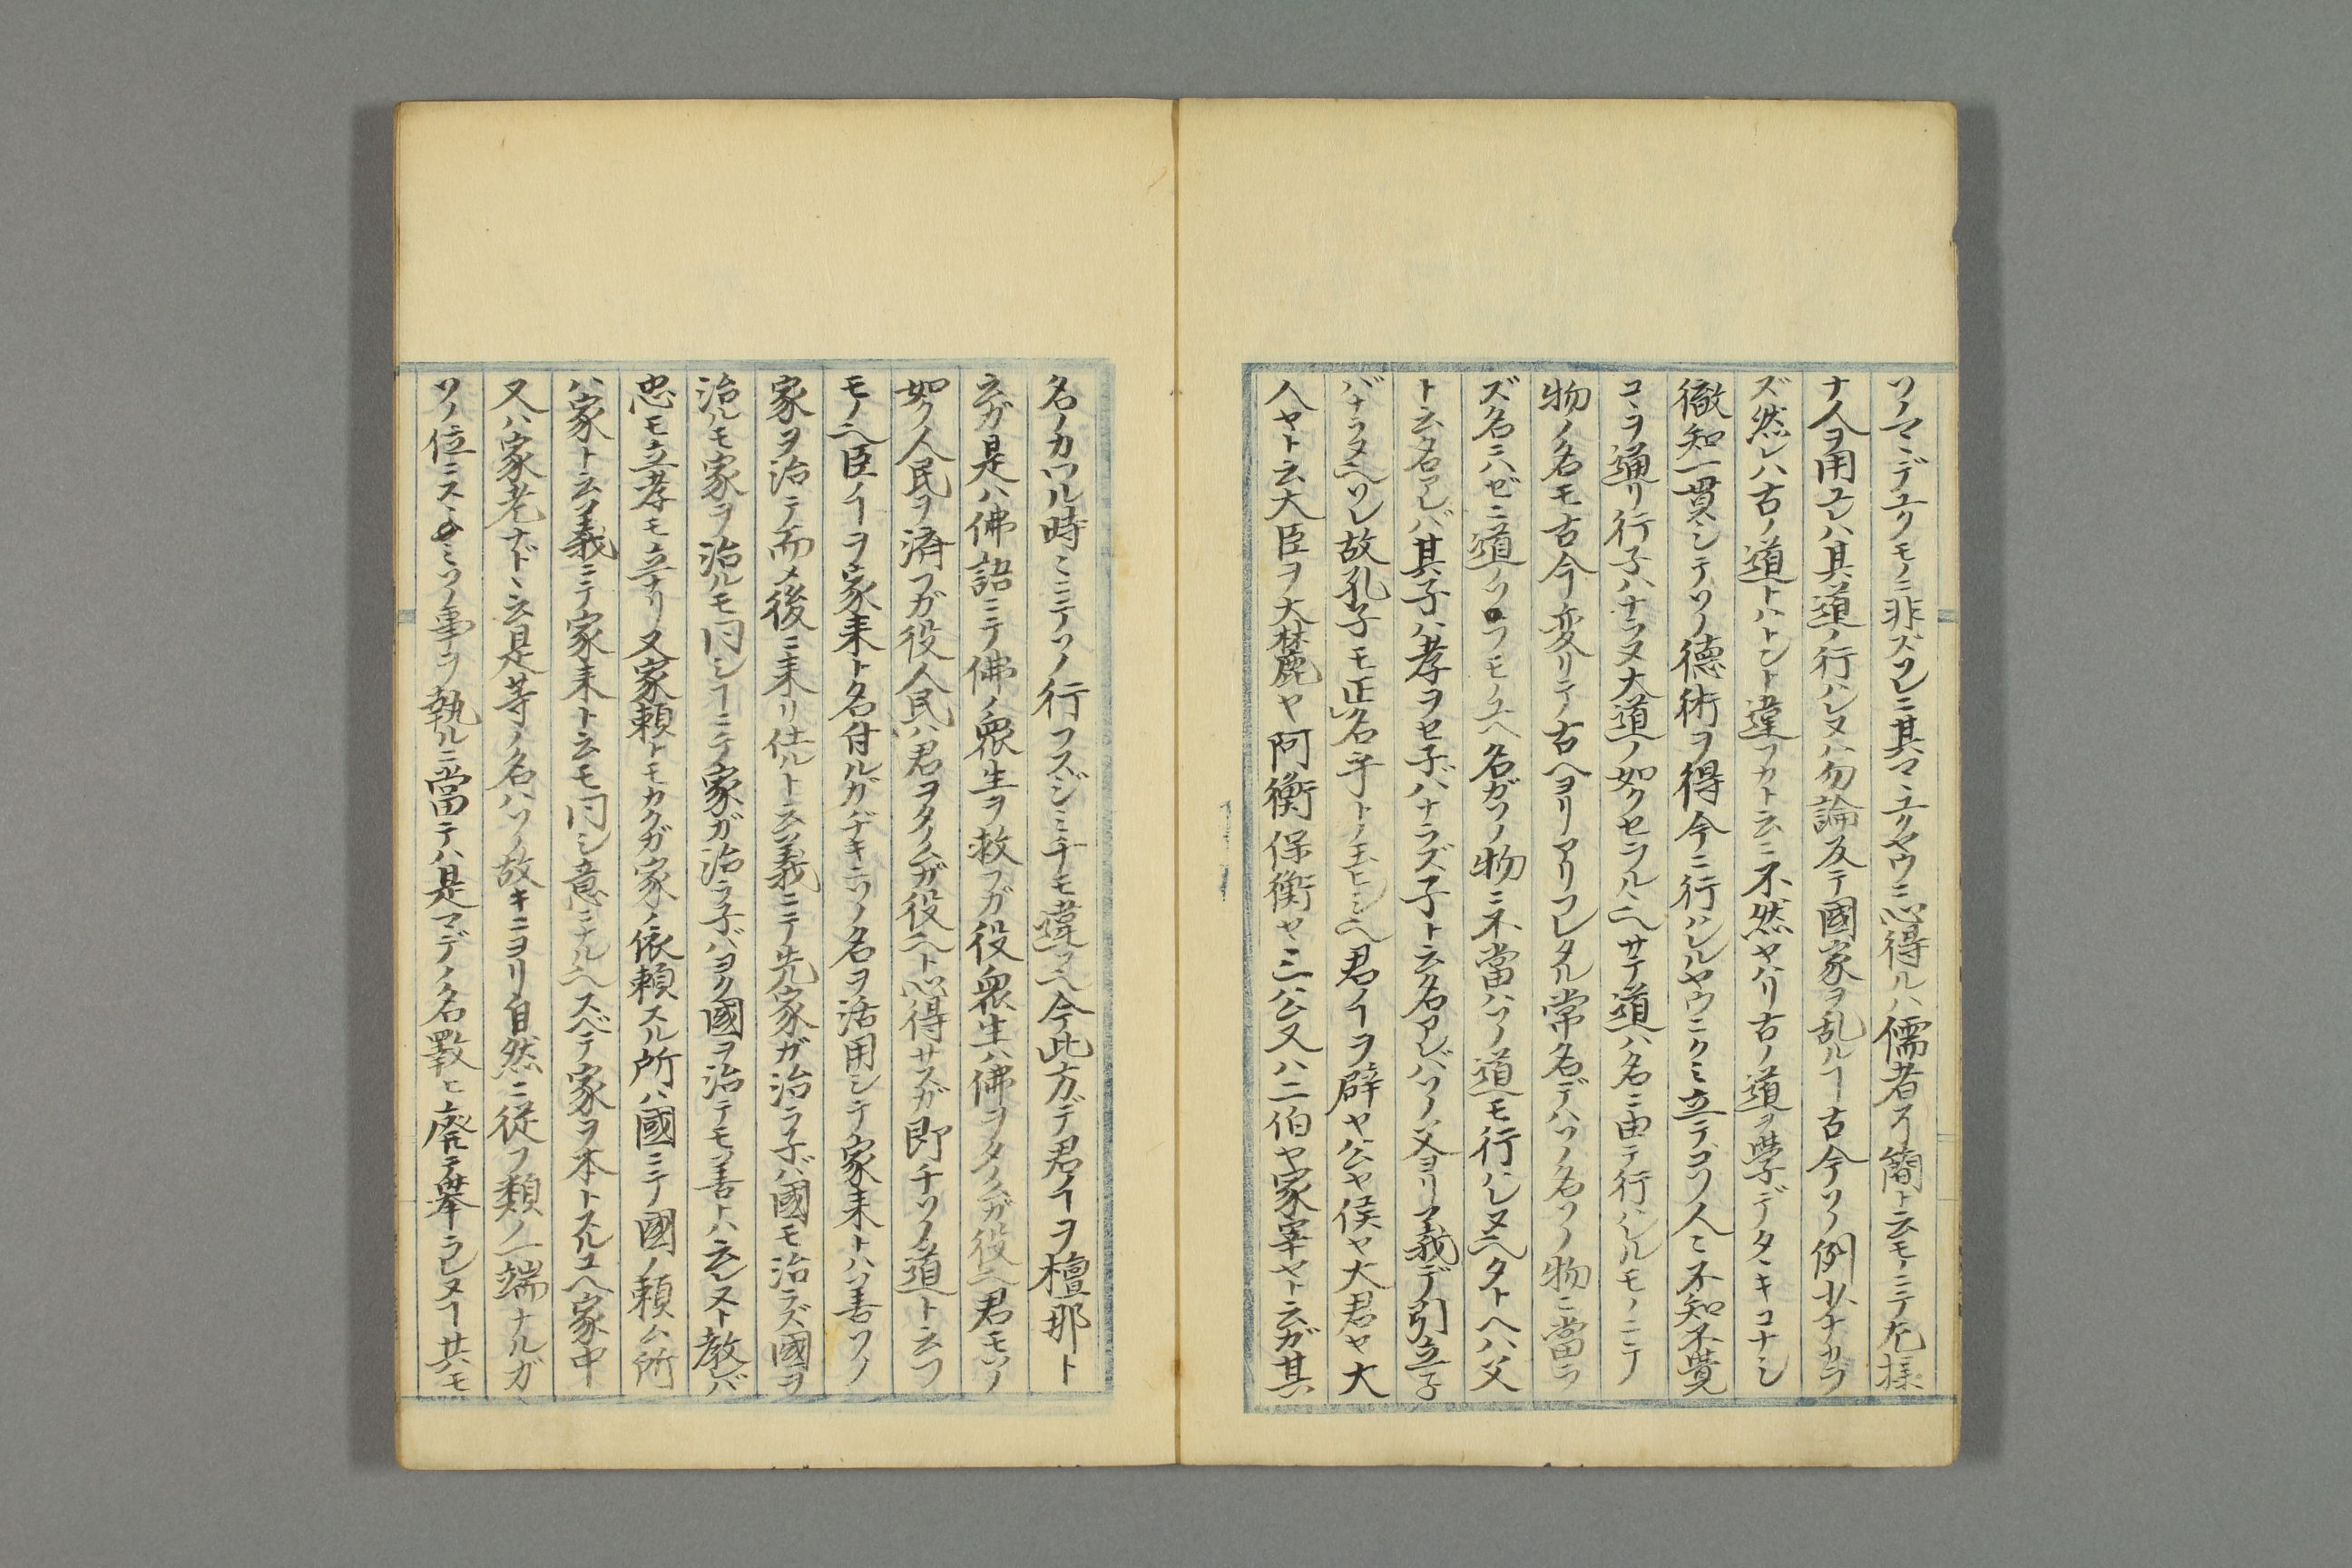 ソノマヽデユクモノニ非ズソレニ其マヽユクヤウニ心得ルハ儒者ズリ簡ト云モノニテ左様
ナ人ヲ用ユレハ其道ノ行ハレヌハ勿論反テ國家ヲ乱ルヿ古今ソノ例少ナカラ
ズ然レハ古ノ道トハトント違フカト云ニ不然ヤハリ古ノ道ヲ學デタヽキコナシ
徹知一貫シテソノ德術ヲ得今ニ行ハレルヤウニクミ立テコソ人ニ不知不覺
コヽヲ通リ行子ハナラヌ大道ノ如クセラルヽ也サテ道ハ名ニ由テ行ハレルモノニテ
物ノ名モ古今変リテ古ヘヨリアリフレタル常名デハソノ名ソノ物ニ當ラ
ズ名ニハゼニ道クツフモノユヘ名ガソノ物ニ不當ハソノ道モ行ハレヌ也タトヘハ父
ト云名アレバ其子ハ孝ヲセ子バナラズ子ト云名アレバソノ父ヨリ義デ引立子
バナラヌ也ソレ故孔子モ正名乎トノ玉ヒシ也君ノヿヲ辟ヤ公ヤ侯ヤ大君ヤ大
人ヤト云大臣ヲ大麓ヤ阿衡保衡ヤ三公又ハ二伯ヤ家宰ヤト云ガ其
名ノカワル時ミニテソノ行フスジミチモ違フ也今此方デ君ノヿヲ檀那ト
云ガ是ハ佛語ニテ佛ノ衆生ヲ救フガ役衆生ハ佛ヲタノムガ役也君モソノ
如ク人民ヲ濟フガ役人民ハ君ヲタノムガ役也ト心得サスガ即チソノ道ト云フ
モノ也臣ノヿヲ家来ト名付ルガヂキニソノ名ヲ活用シテ家来トハ善ソノ
家ヲ治テ而メ後ニ来リ仕ルト云義ニテ先家ガ治ラ子バ國モ治ラズ國ヲ
治ルモ家ヲ治ルモ同シヿニテ家ガ治ラ子バヨク國ヲ治テモ善トハ云レヌト教レバ
忠モ立孝モ立ナリ又家賴トモカクガ家ノ依賴スル所ハ國ニテ國ノ賴ム所
ハ家ト云義ニテ家来ト云モ同シ意ニナル也スベテ家ヲ本トスルユヘ家中
又ハ家老ナドヽ云是等ノ名ハソノ故キニヨリ自然ニ従フ類ノ一端ナルガ
ソノ位ニスヽミソノ事ヲ執ルニ當テハ是マデノ名數ヒ廢テ擧ラレヌヿ共モ